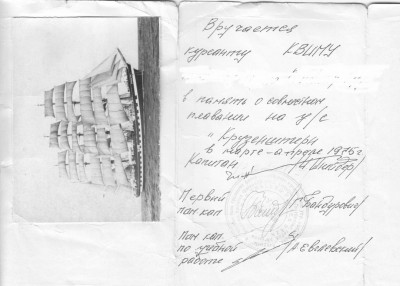 Вручается
курсанту КВИМУ
в память о совместном
плавании на у/с
"Крузенштерн
в марте-апреле 1976г
Капитан /И Шнейдер/
Первый
пом кап /Г Бондурович/
Пом кап.
по учебной
работе